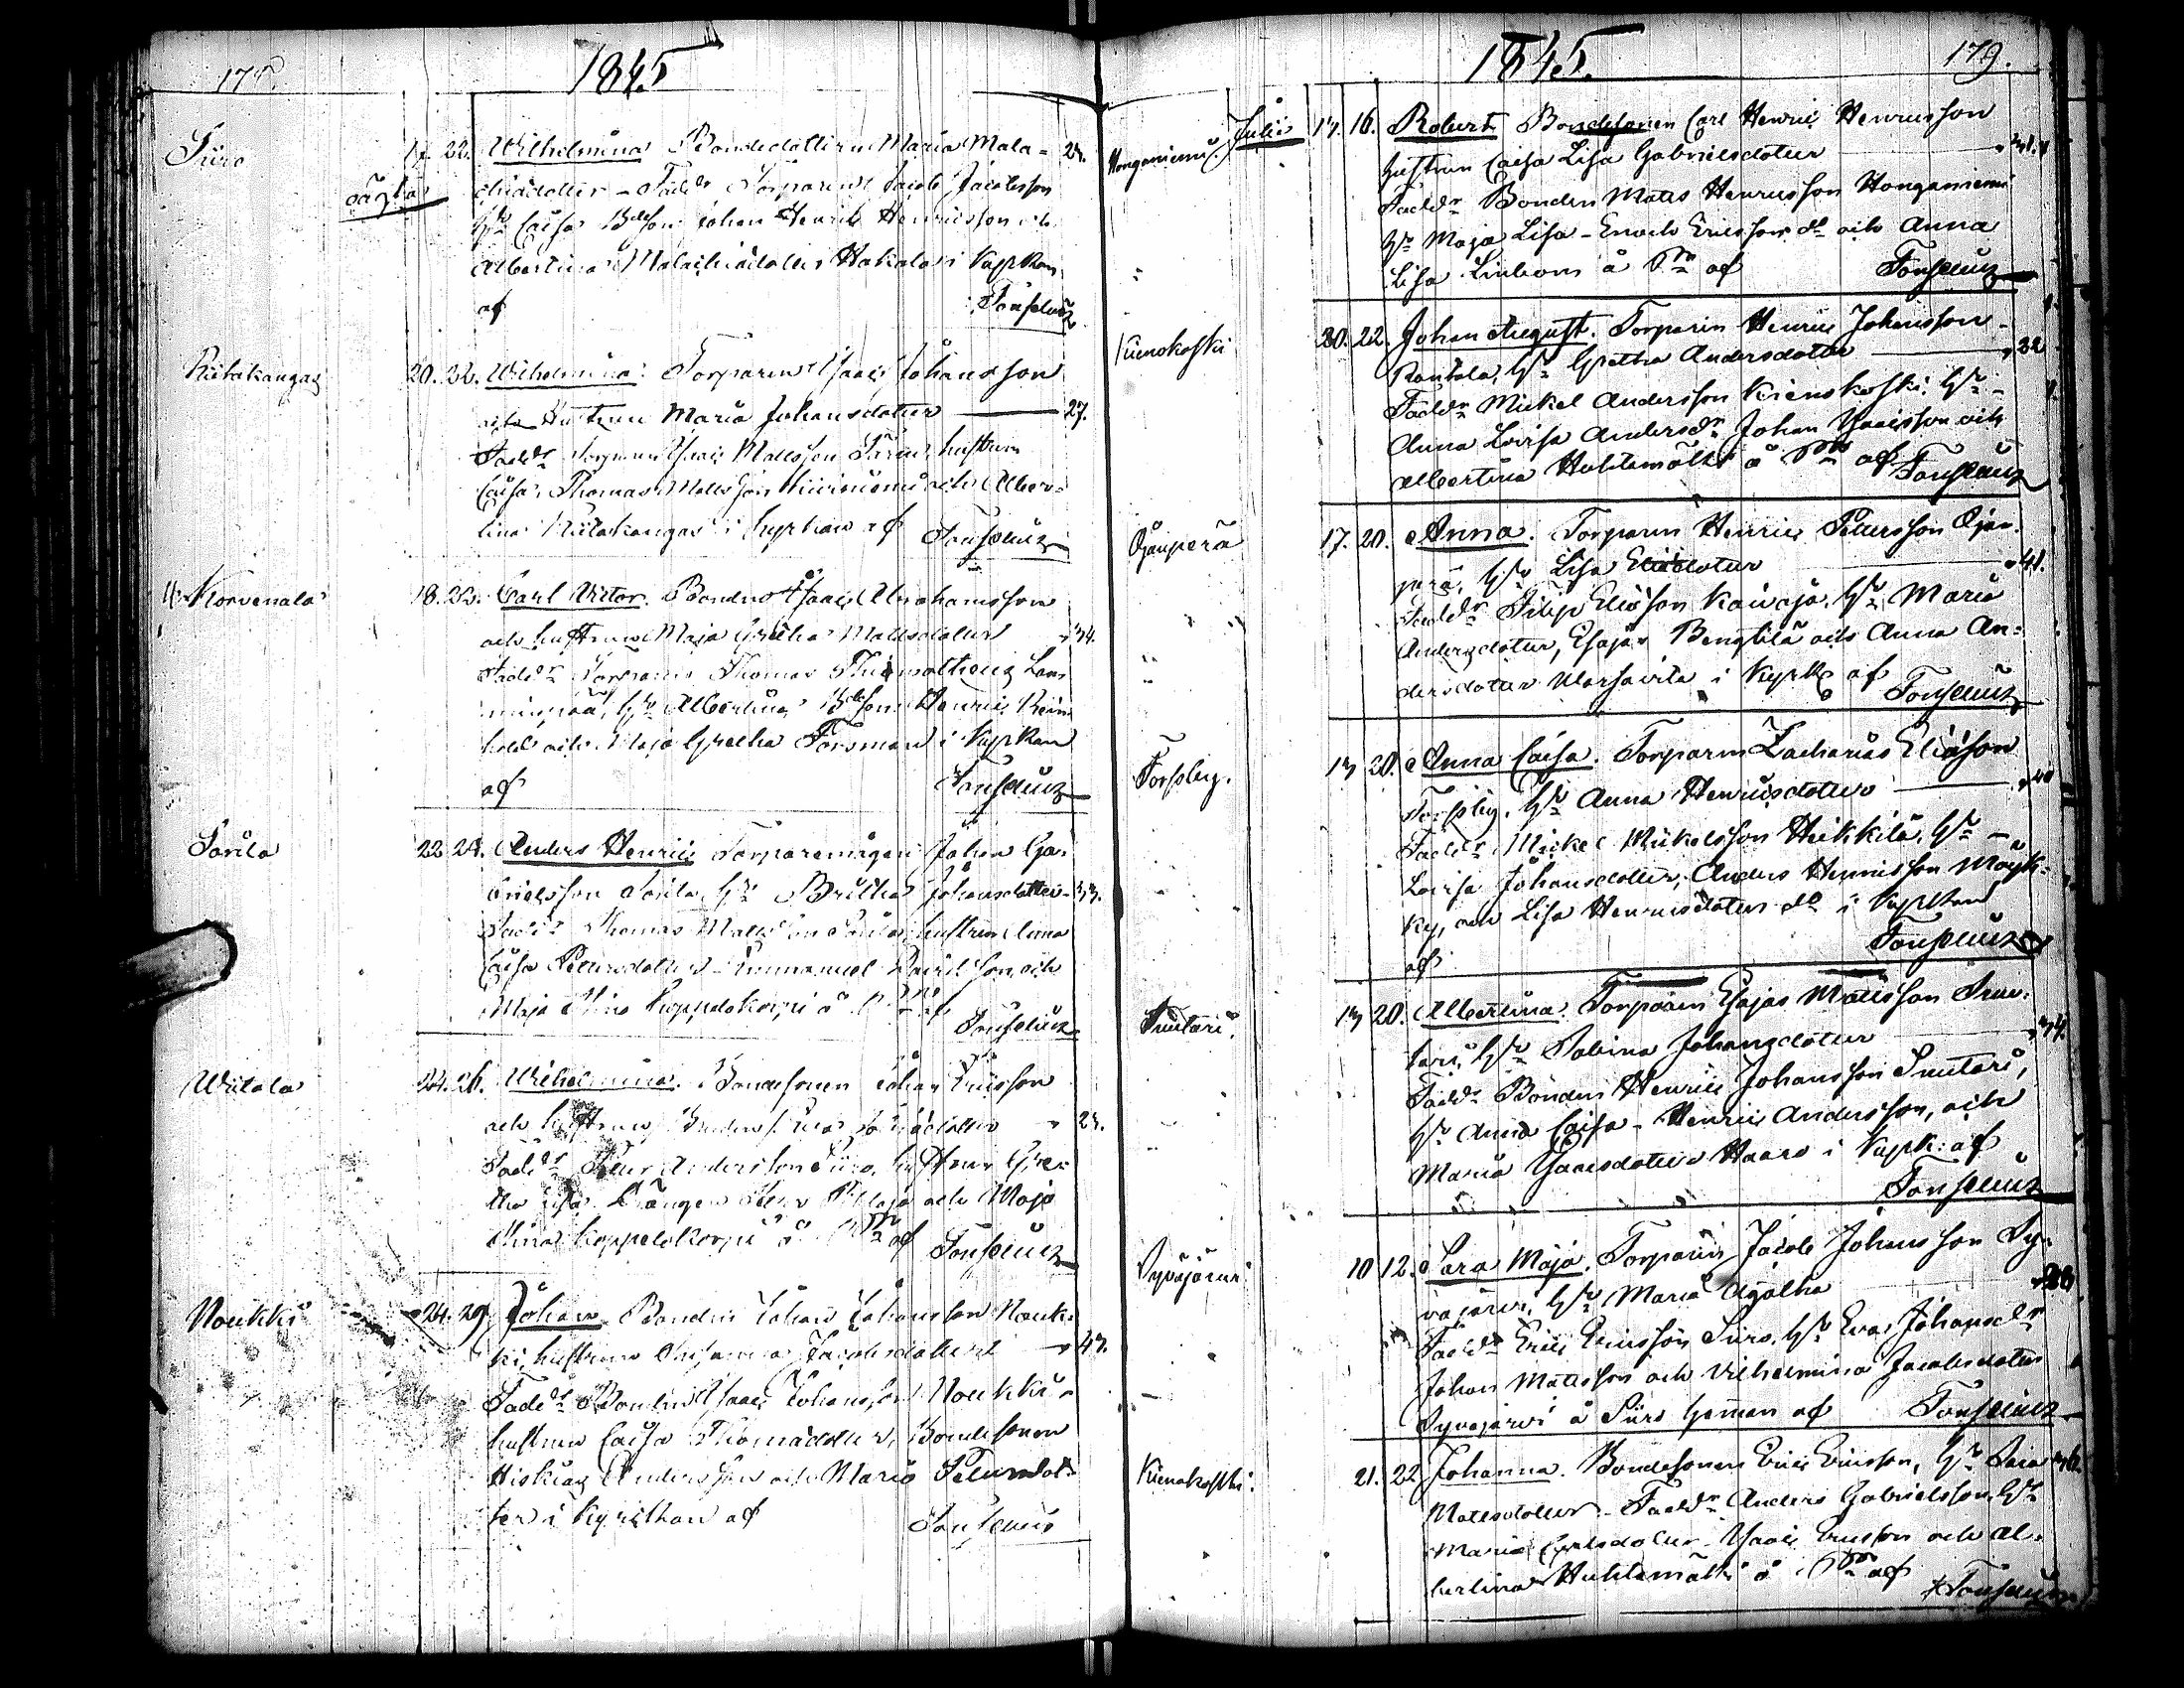 178.
1845
Siiro
oägta
17. 22. Wilhelmina Bondedottren Maria Mala-
chiädotter - Faddr Torparen Jacob Jacobsson
Hu Caisa Bdeson Johan Henric Henricsson och
Albertina Malachiädotter Hakala i Kyrkan
af Tonselius
Riitakangas
20. 22. Wilhelmina. Torparen Isaac Johansson
och Hustrun Maria Johansdotter 27.
Faddr Isaac Mattsson hustrun
Caisa, Thomas Mattsson och Alber-
tina Riitakangas i kyrkan af Tonselius
Korvenala
18. 22. Carl Victor. Bonden Isaac Abrahamsson
och hustrun Maja Gretha Mattsdotter 34.
Faddr Torparen Thomas
Hu Albertina Bdeson Henric Rein-
hold och Maja Gretha Forsman i Kyrkan
af Tonselius
Sorila
22 24. Anders Henric Torparemågen Johan Ga-
brielsson Sorila, Hu Britha Johansdotter 33.
Faddr Thomas Mattsson Sorila, hustrun Anna
Caisa Petersdotter - Emmanuel Davidsson och
Maja Stina Koppelokorpi å Pn af
Tonselius
Wiitala
24. 26. Wilhelmina. Bondesonen Johan Ericsson
och hustrun 23.
Faddr Peter Andersson Siiro, hustrun Gre-
tha Lisa Drängen och Maja
Stina Koppelokorpi å Pn af Tonselius
Noukki
24. 29. Johan Bonden Johan Johansson Nouk-
ki, hustrun Susanna Jacobsdotter 43.
Faddr Bonden Isaac Johansson Noukki
hustrun Caisa Thomädotter, Bondesonen
Hiskias Andersson och Maria Petersdot-
ter i Kyrkan af Tonselius
1845.
179.
Honganiemi.
Julii 13. 16. Robert Bondesonen Carl Henric Henricsson
hustrun Caisa Lisa Gabrielsdotter 31.
Faddr Bonden Matts Henricsson Honganiemi
Hu Maja Lisa - Enoch Ericsson do och Anna
Lisa å Pn af Tonselius
Kienokoski
20. 22. Johan August. Torparen Henric Johansson
Rantala, Hu Gretha Andersdotter 32
Faddr Mickel Andersson Kienokoski, Hu
Anna Lovisa Andersdr Johan Isacsson och
Albertina Huhtamäki å Pn af Tonselius
Ojanperä
17. 20. Anna. Torparen Henric Petersson Ojan-
perä, Hu Lisa Eliädotter 41.
Faddr Filip Eliäson Kaivoja, Hu Maria
Andersdotter, Esajas Bengtilä och Anna An-
dersdotter i Kyrk af
Tonselius
Torsplig.
13 20. Anna Caisa. Torparen Zacharias Eliäson
Torsplig, Hu Anna Henricsdotter 40
Faddr Mickel Mickelsson Heikkilä, Hu
Lovisa Johansdotter, Anders Henricsson Mäyk-
ky, och Lisa Henricsdotter do i Kyrkan
af Tonselius
Suutari.
13 20. Albertina. Torparen Esajas Mattsson Suu-
tari, Hu Sabina Johansdotter 34.
Faddr Bonden Henric Johansson Suutari,
Hu Anna Caisa - Henric Andersson, och
Maria Isacsdotter Haaro i Kyrk: af
Tonselius
Syväjärvi.
10 12. Sara Maja. Torparen Jacob Johansson Sy-
väjärvi, Hu Maria Agatha 28
Faddr Eric Ericsson Siiro, Hu Eva Johansdr
Johan Mattsson och Wilhelmina Jacobsdotter
Syväjärvi å Siiro hemman af Tonselius
Kienokoski.
21. 22 Johanna. Bondesonen Eric Ericsson, Hu Caisa 36.
Mattsdotter - Faddr Anders Gabrielsson, Hu
Maria Isac Ericsson och Al-
bertina Huhtamäki å Pn af
Tonselius